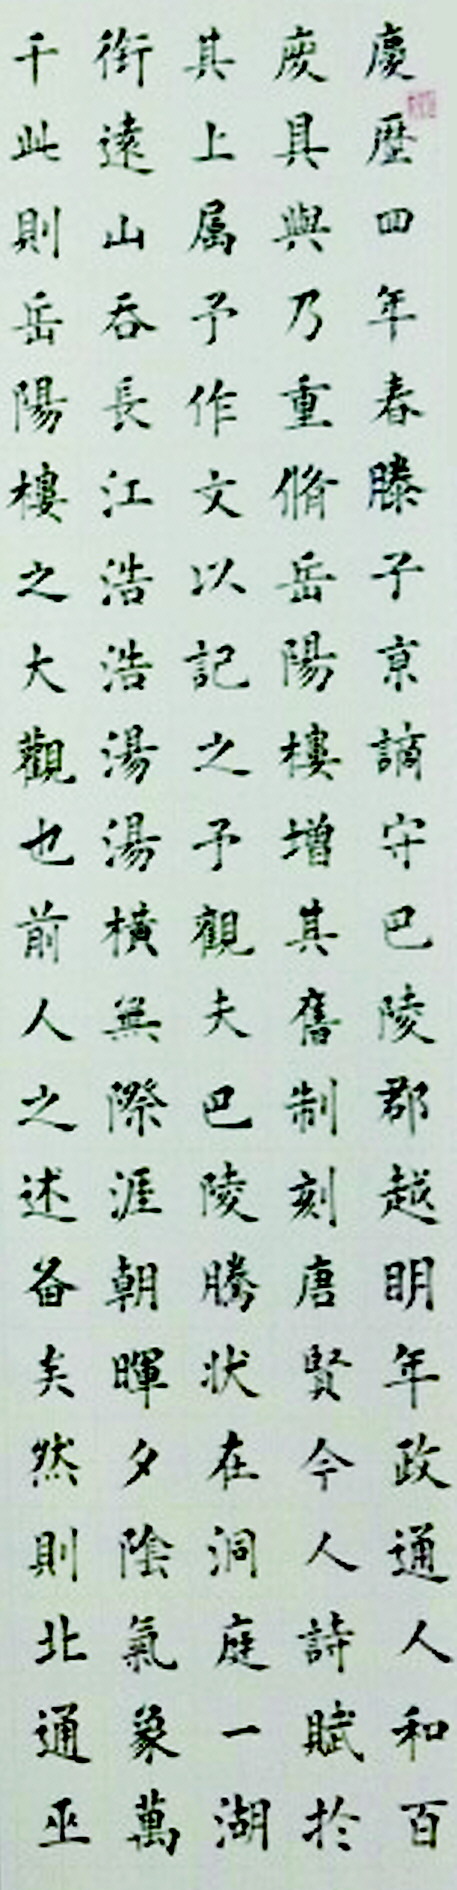 慶歷四年春滕子京謫守巴陵郡越明年政通人和百
廢具興乃重脩岳陽樓增其舊制刻唐賢今人詩賦於
其上属予作文以記之予觀夫巴陵勝状在洞庭一湖
銜遠山吞長江浩浩湯湯橫無際涯朝暉夕陰氣象萬
千此則岳陽樓之大觀也前人之述备矣然則北通巫